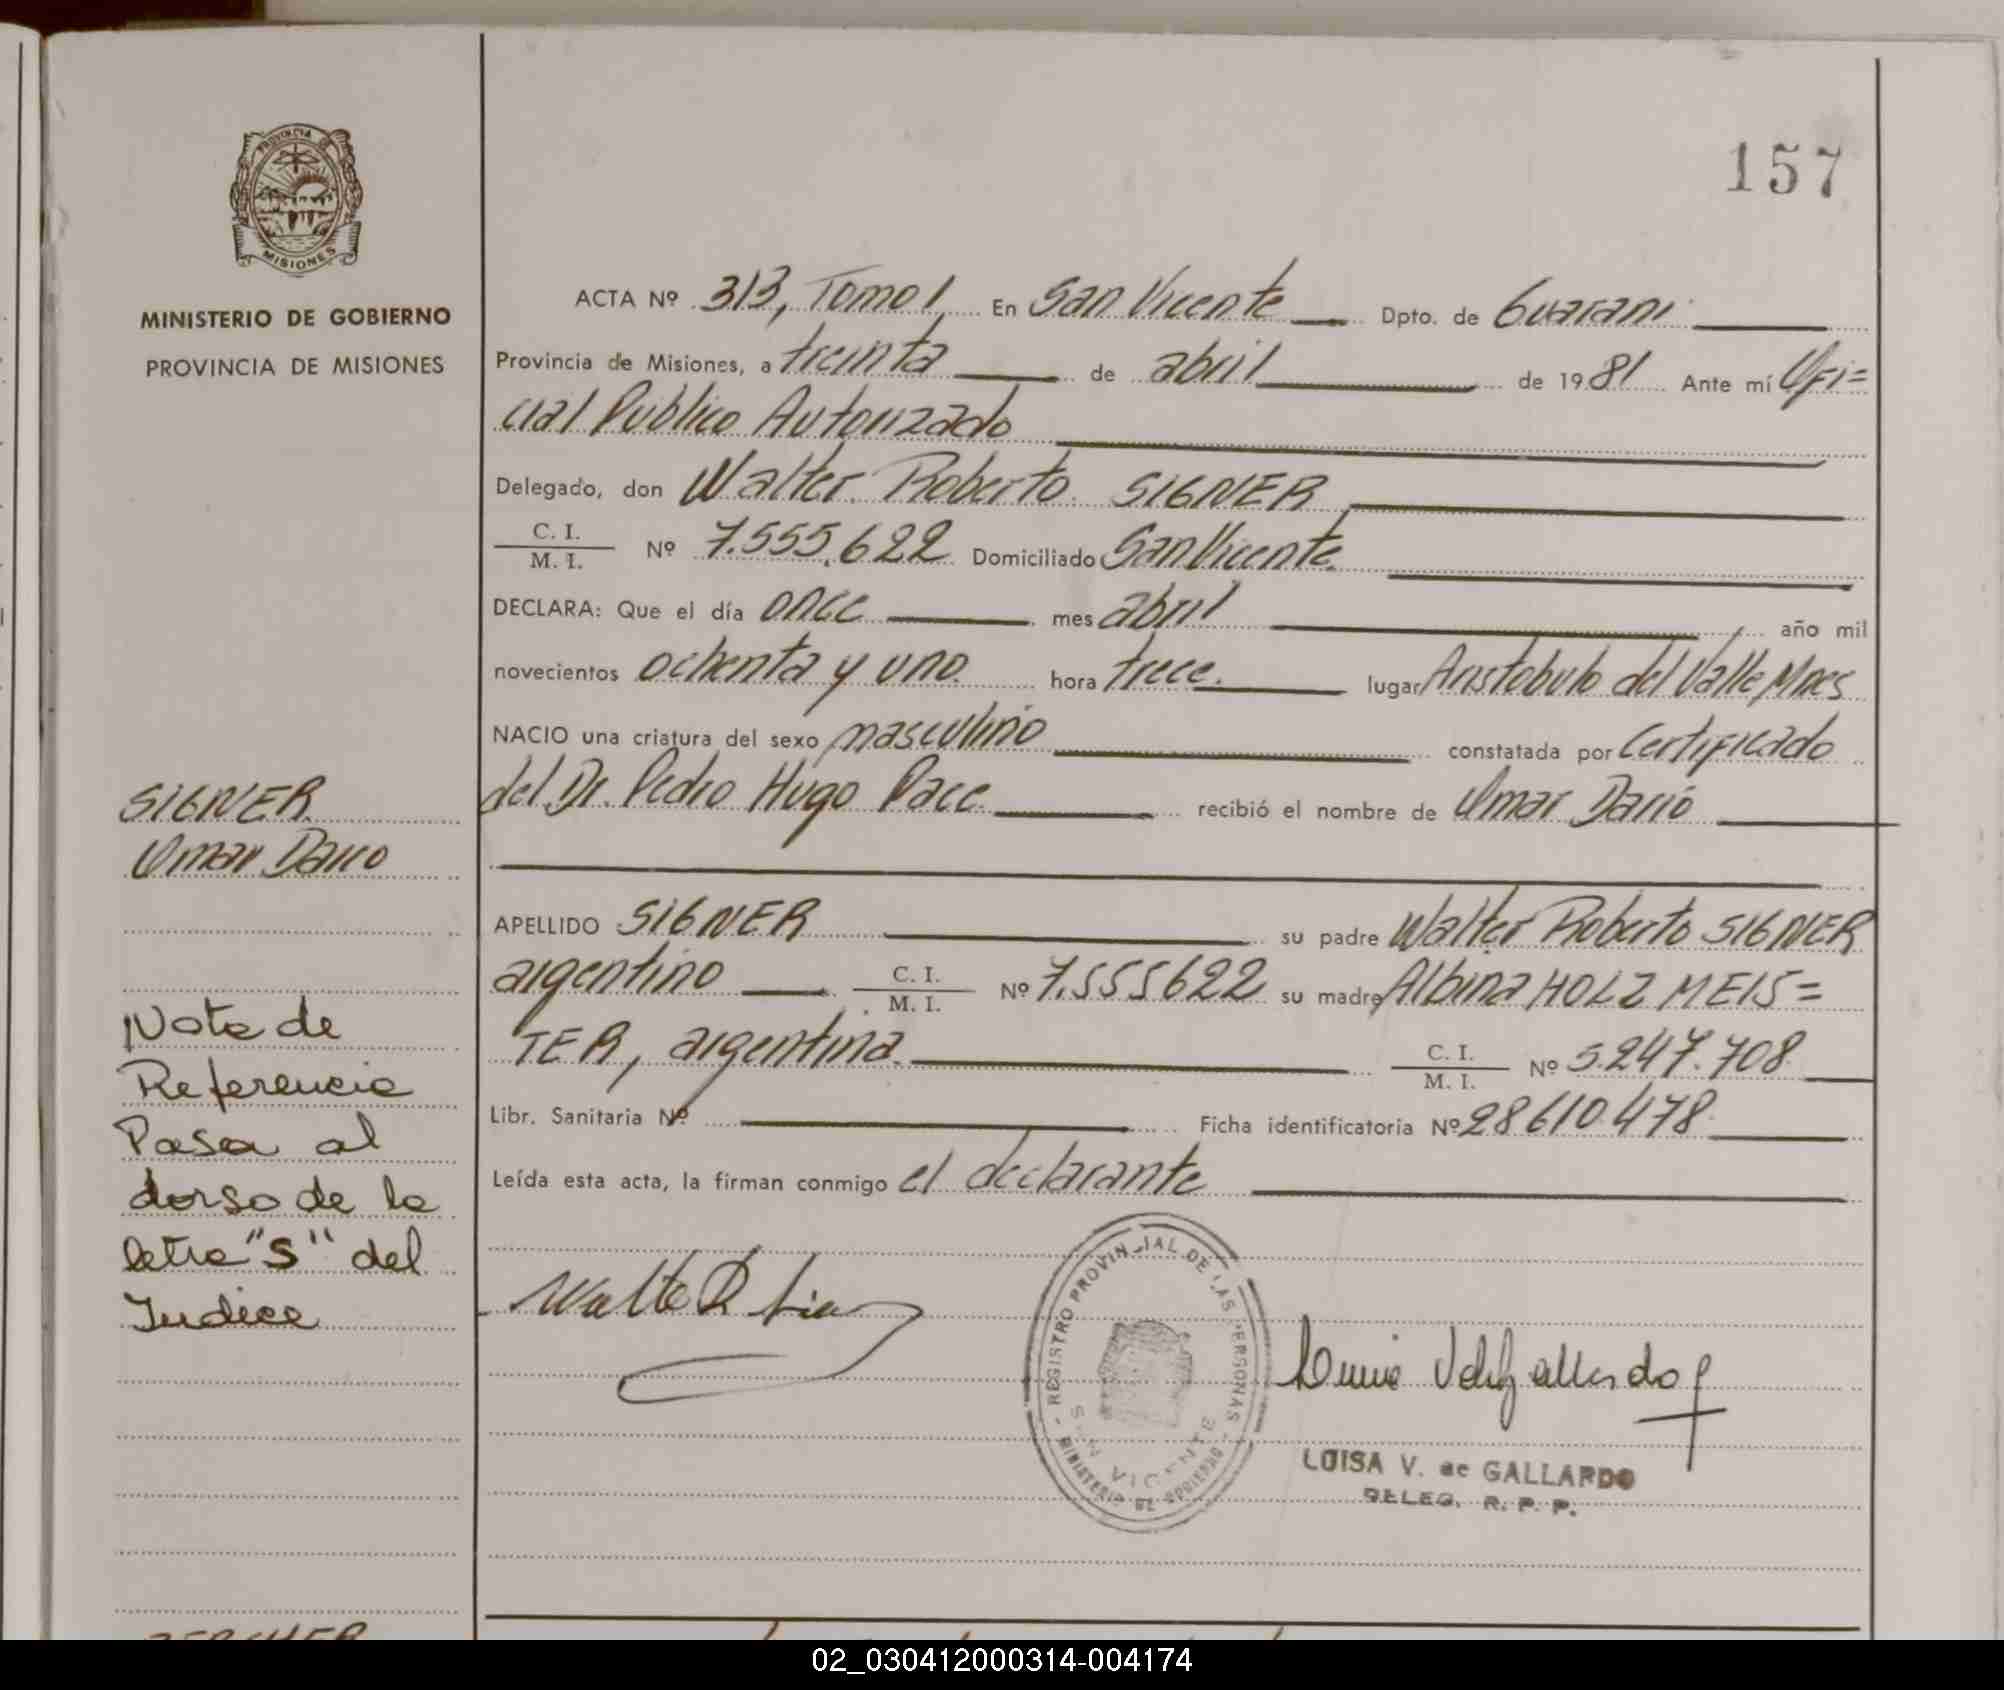 157
PROVINCIA DE
MISIONES
MINISTERIO DE GOBIERNO
PROVINCIA DE MISIONES
ACTA Nº 313, Tomo I En San Vicente Dpto. de Guarani
Provincia de Misiones, a treinta de abril de 1981 Ante mí Ofi=
cial Público Autorizado
Delegado, don Walter Roberto SIGNER
C. I.
M. I. Nº 7.555.622 Domiciliado San Vicente
DECLARA: Que el día once mes abril año mil
novecientos ochenta y uno hora trece. lugar Aristobulo del Valle Mnes
NACIO una criatura del sexo masculino constatada por Certificado
del Dr. Pedro Hugo Pace recibió el nombre de Omar Darío
SIGNER
Omar Dario
APELLIDO SIGNER su padre Walter Roberto SIGNER
argentino C. I. M. I. Nº 7.555622 su madre Albina HOLZMEIS=
TER, argentina C. I. M. I. Nº 5.247.708
Libr. Sanitaria Nº Ficha identificatoria Nº 28610478
Leída esta acta, la firman conmigo el declarante
Nota de
Referencia
Pasa al
dorso de la
letra "S" del
Indice
REGISTRO PROVINCIAL DE LAS PERSONAS
SAN VICENTE
MINISTERIO DE GOBIERNO
LUISA V. de GALLARDO
DELEG. R. P. P.
02_030412000314-004174